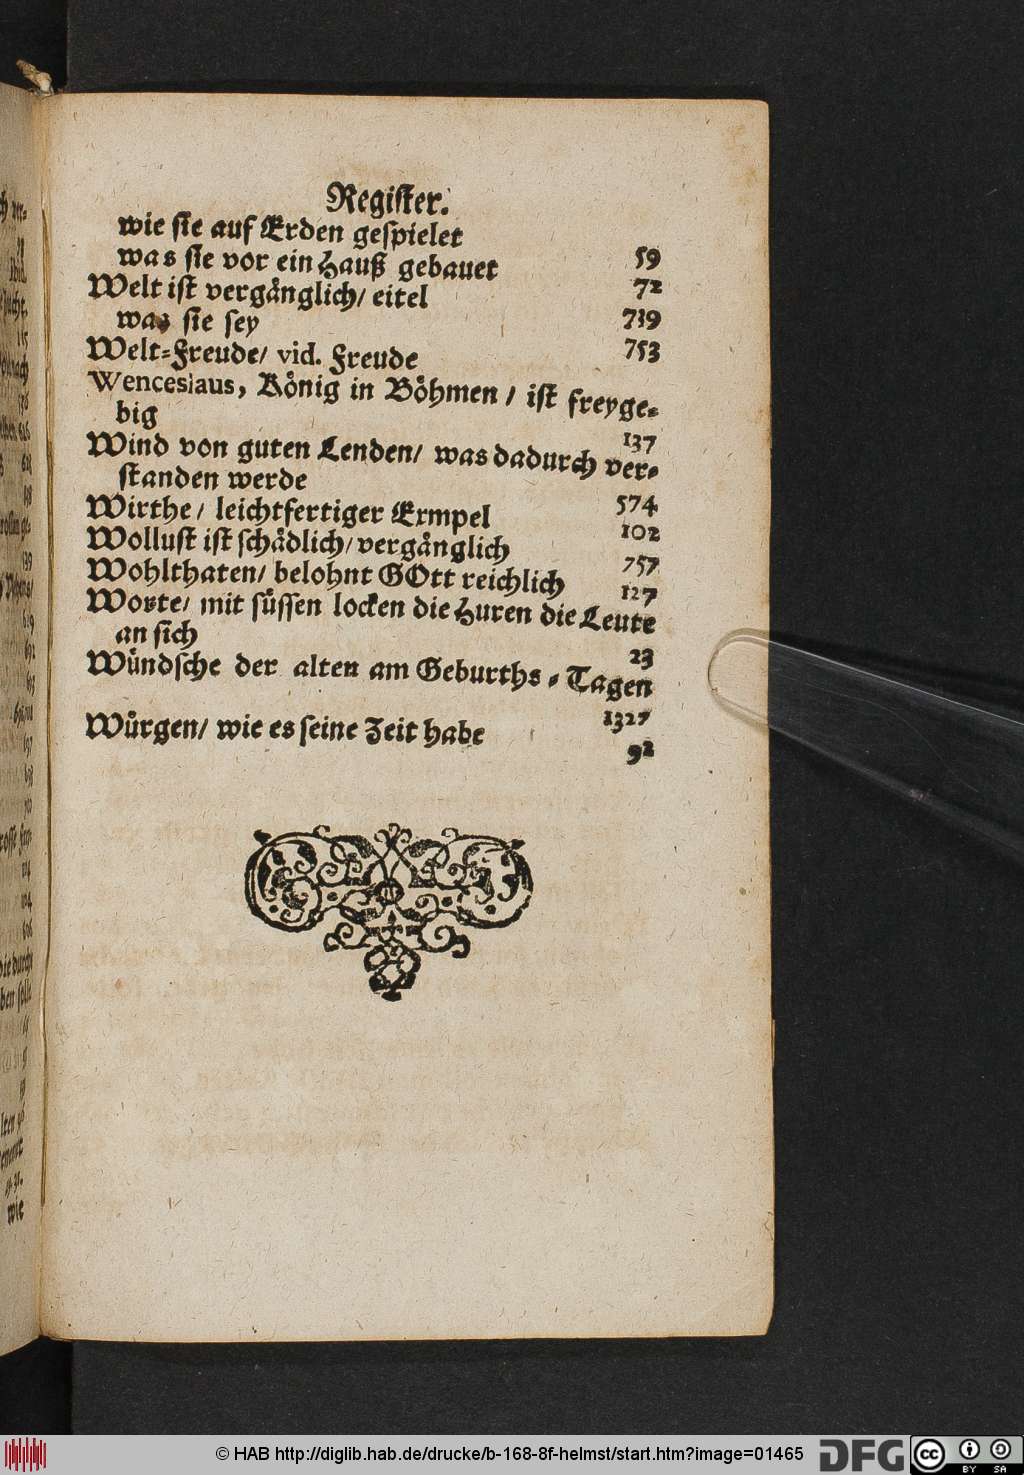 Register.
wie sie auf Erden gespielet 59
was sie vor ein Hauß gebauet 72
Welt ist vergänglich/ eitel 739
was sie sey 753
Welt-Freude/ vid. Freude
Wenceslaus, König in Böhmen / ist freyge-
big 137
Wind von guten Lenden/ was dadurch ver-
standen werde 574
Wirthe/ leichtfertiger Exmpel 102
Wollust ist schädlich/ vergänglich 757
Wohlthaten/ belohnt GOtt reichlich 127
Worte/ mit süssen locken die Huren die Leute
an sich 23
Wündsche der alten am Geburths-Tagen
1327
Würgen/ wie es seine Zeit habe 92
© HAB http://diglib.hab.de/drucke/b-168-8f-helmst/start.htm?image=01465
DFG
cc BY SA